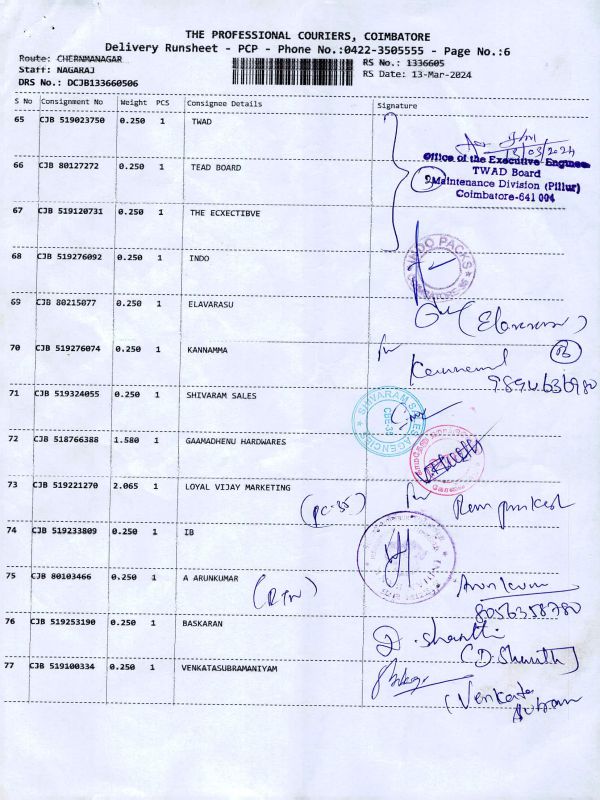 THE PROFESSIONAL COURIERS, COIMBATORE
Delivery Runsheet - PCP - Phone No.:0422-3505555 - Page No.:6
Route: CHERNMANAGAR
Staff: NAGARAJ
DRS No.: DCJB133660506
RS No.: 1336605
RS Date: 13-Mar-2024
S No Consignment No Weight PCS Consignee Details Signature
65 CJB 519023750 0.250 1 TWAD
13/03/2024
66 CJB 80127272 0.250 1 TEAD BOARD
Office of the Executive Engineer
TWAD Board
Maintenance Division (Pillur)
Coimbatore-641 004
67 CJB 519120731 0.250 1 THE ECXECTIBVE
68 CJB 519276092 0.250 1 INDO
INDO PACKS
69 CJB 80215077 0.250 1 ELAVARASU
70 CJB 519276074 0.250 1 KANNAMMA
9894636980
71 CJB 519324055 0.250 1 SHIVARAM SALES
SHIVARAM SALES AGENCIES
CBE-35
72 CJB 518766388 1.580 1 GAAMADHENU HARDWARES
73 CJB 519221270 2.065 1 LOYAL VIJAY MARKETING
(PC-35)
74 CJB 519233809 0.250 1 IB
75 CJB 80103466 0.250 1 A ARUNKUMAR
Arunkumar
8056358780
76 CJB 519253190 0.250 1 BASKARAN
D. Shanthi
(D.Shanthi)
77 CJB 519100334 0.250 1 VENKATASUBRAMANIYAM
(Venkata
Subram